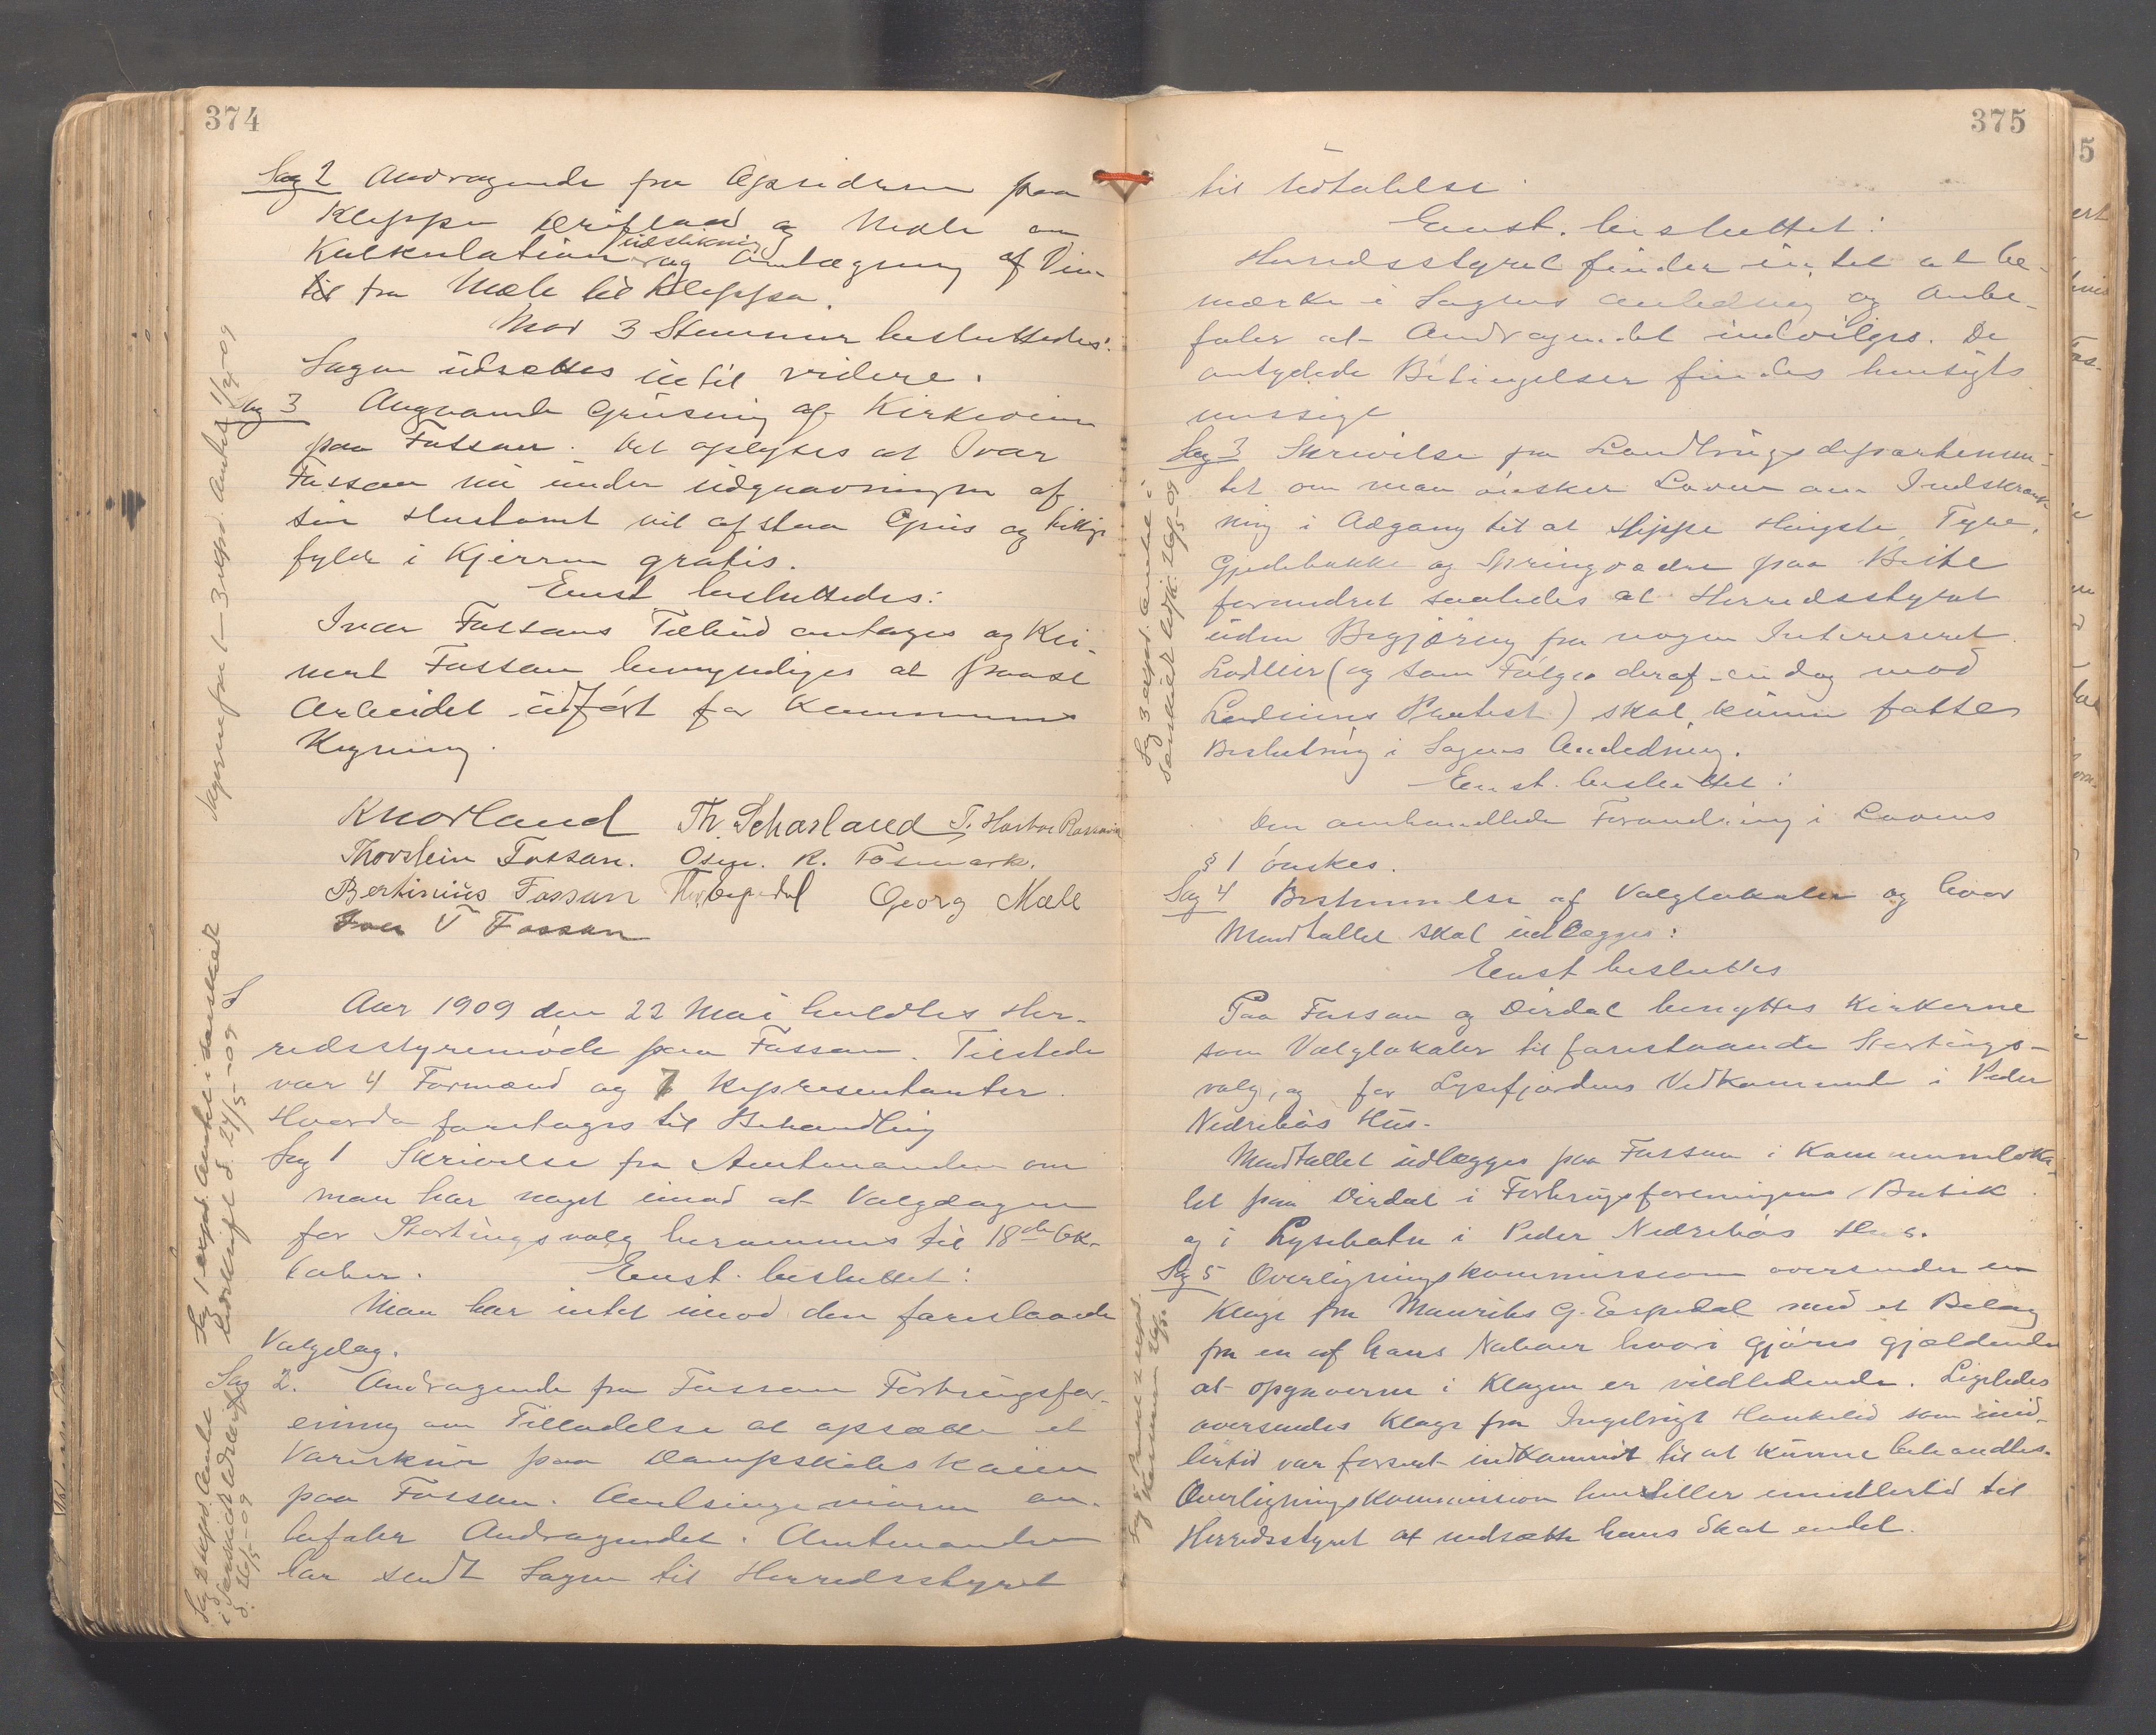 374
Sag 2 Andragende fra Opsidderne paa
Kleppe Eritland og Mæle om
Kalkulation udstikning og Omlægning af Vei
til fra Mæle til Kleppa.
Mod 3 Stemmer besluttedes:
Sagen udsættes intil videre.
Sag 3 Angaaende Grusning af Kirkeveien
paa Fossan. Det oplystes at Ivar
Fossan nu under udgravningen af
sin Hustomt vil afstaa Grus og
fylde i Kjerren gratis.
Enst besluttedes:
Ivar Fossans Tilbud antages og Rei-
nert Fossan bemyndiges at faa
Arbeidet udført for Kommunens
Regning.
Knorland Th. Scharland T. Hasboe
Thorstein Fossan. Osm. R. Fosmark.
Bertinius Fossan Th. Espedal Georg Mæle
Iver T Fossan
Aar 1909 den 22 Mai holdtes Her-
redsstyremøde paa Fossan. Tilstede
var 4 Formænd og 7 Repræsentanter.
Hvorda foretages til Behandling
Sag 1 Skrivelse fra Amtmanden om
man har noget imod at Valgdagen
for Stortingsvalg berammes til 18de Ok-
tober. Enst. besluttet:
Man har intet imod den foreslaaede
Valgdag.
Sag 2. Andragende fra Fossan Forbrugsfor-
ening om Tilladelse at opsætte et
Vareskur paa Dampskibskaien
paa Fossan. Amtsingeniøren an-
befaler Andragendet. Amtmanden
har sendt Sagen til Herredsstyret
Sag 1 exped. Amtet i særskilt
Udskrift d. 24/5-09
Sag 2 exped. Amtet
i særskilt Udskrift
d. 26/5-09
375
til Udtalelse
Enst. besluttet:
Herredsstyret finder intet at be-
mærke i Sagens anledning og Anbe-
faler at Andragendet indvilges. De
antydede Betingelser findes hensigts
mæssige
Sag 3 Skrivelse fra Landbrugsdepartemen-
tet om man ønsker Loven om Indskrænk-
ning i Adgang til at slippe Hingste, Tyre,
Gjedebukke og Springvædre paa Beite
forandret saaledes at Herredsstyret
uden Begjæring fra nogen Interesseret
Lodeier (og som Følge deraf endog mod
Lodeiernes Protest) skal kunne fatte
Beslutning i Sagens Anledning.
Enst. besluttet:
Den omhandlede Forandring i Lovens
§ 1 ønskes.
Sag 4 Bestemmelse af Valglokaler og hvor
Mandtallet skal udlægges:
Enst besluttes
Paa Fossan og Dirdal benyttes Kirkerne
som Valglokaler til forestaaende Stortings-
valg, og for Lysefjordens Vedkommende i Peder
Nedrebøs Hus.
Mandtallet udlægges paa Fossan i Kommuneloka-
let paa Dirdal i Forbrugsforeningens Butik
og i Lysebotn i Peder Nedrebøs Hus.
Sag 5 Overligningskommissionen oversender en
Klage fra Maurits G. Espedal med et Bilag
fra en af hans Naboer hvori gjøres gjældende
at opgaverne i Klagen er vildledende. Ligeledes
oversendes Klage fra Ingebrigt Haukelid som imid-
lertid var forsent indkommet til at kunne behandles.
Overligningskommission henstiller imidlertid til
Herredsstyret at nedsætte hans Skat endel.
Sag 3 exped. Amtet i
særskilt Udsk. 26/5-09